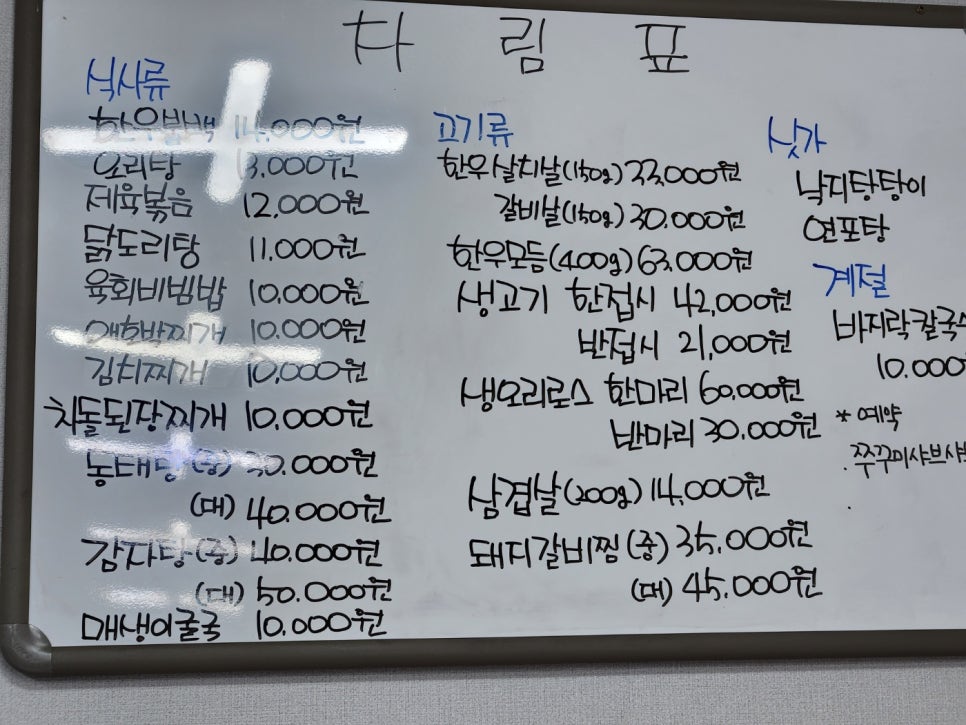 차림표
식사류
한우밥백 14,000원
오리탕 13,000원
제육볶음 12,000원
닭도리탕 11,000원
육회비빔밥 10,000원
애호박찌개 10,000원
김치찌개 10,000원
차돌된장찌개 10,000원
동태탕(중) 30.000원
(대) 40.000원
감자탕(중) 40.000원
(대) 50.000원
매생이굴국 10.000원
고기류
한우살치살(150g) 33,000원
갈비살(150g) 30.000원
한우모듬(400g) 63.000원
생고기 한접시 42,000원
반접시 21,000원
생오리로스 한마리 60.000원
반마리 30.000원
삼겹살(200g) 14,000원
돼지갈비찜(중) 35,000원
(대) 45.000원
싯가
낙지탕탕이
연포탕
계절
바지락칼국수
10.000
* 예약
. 쭈꾸미샤브샤브